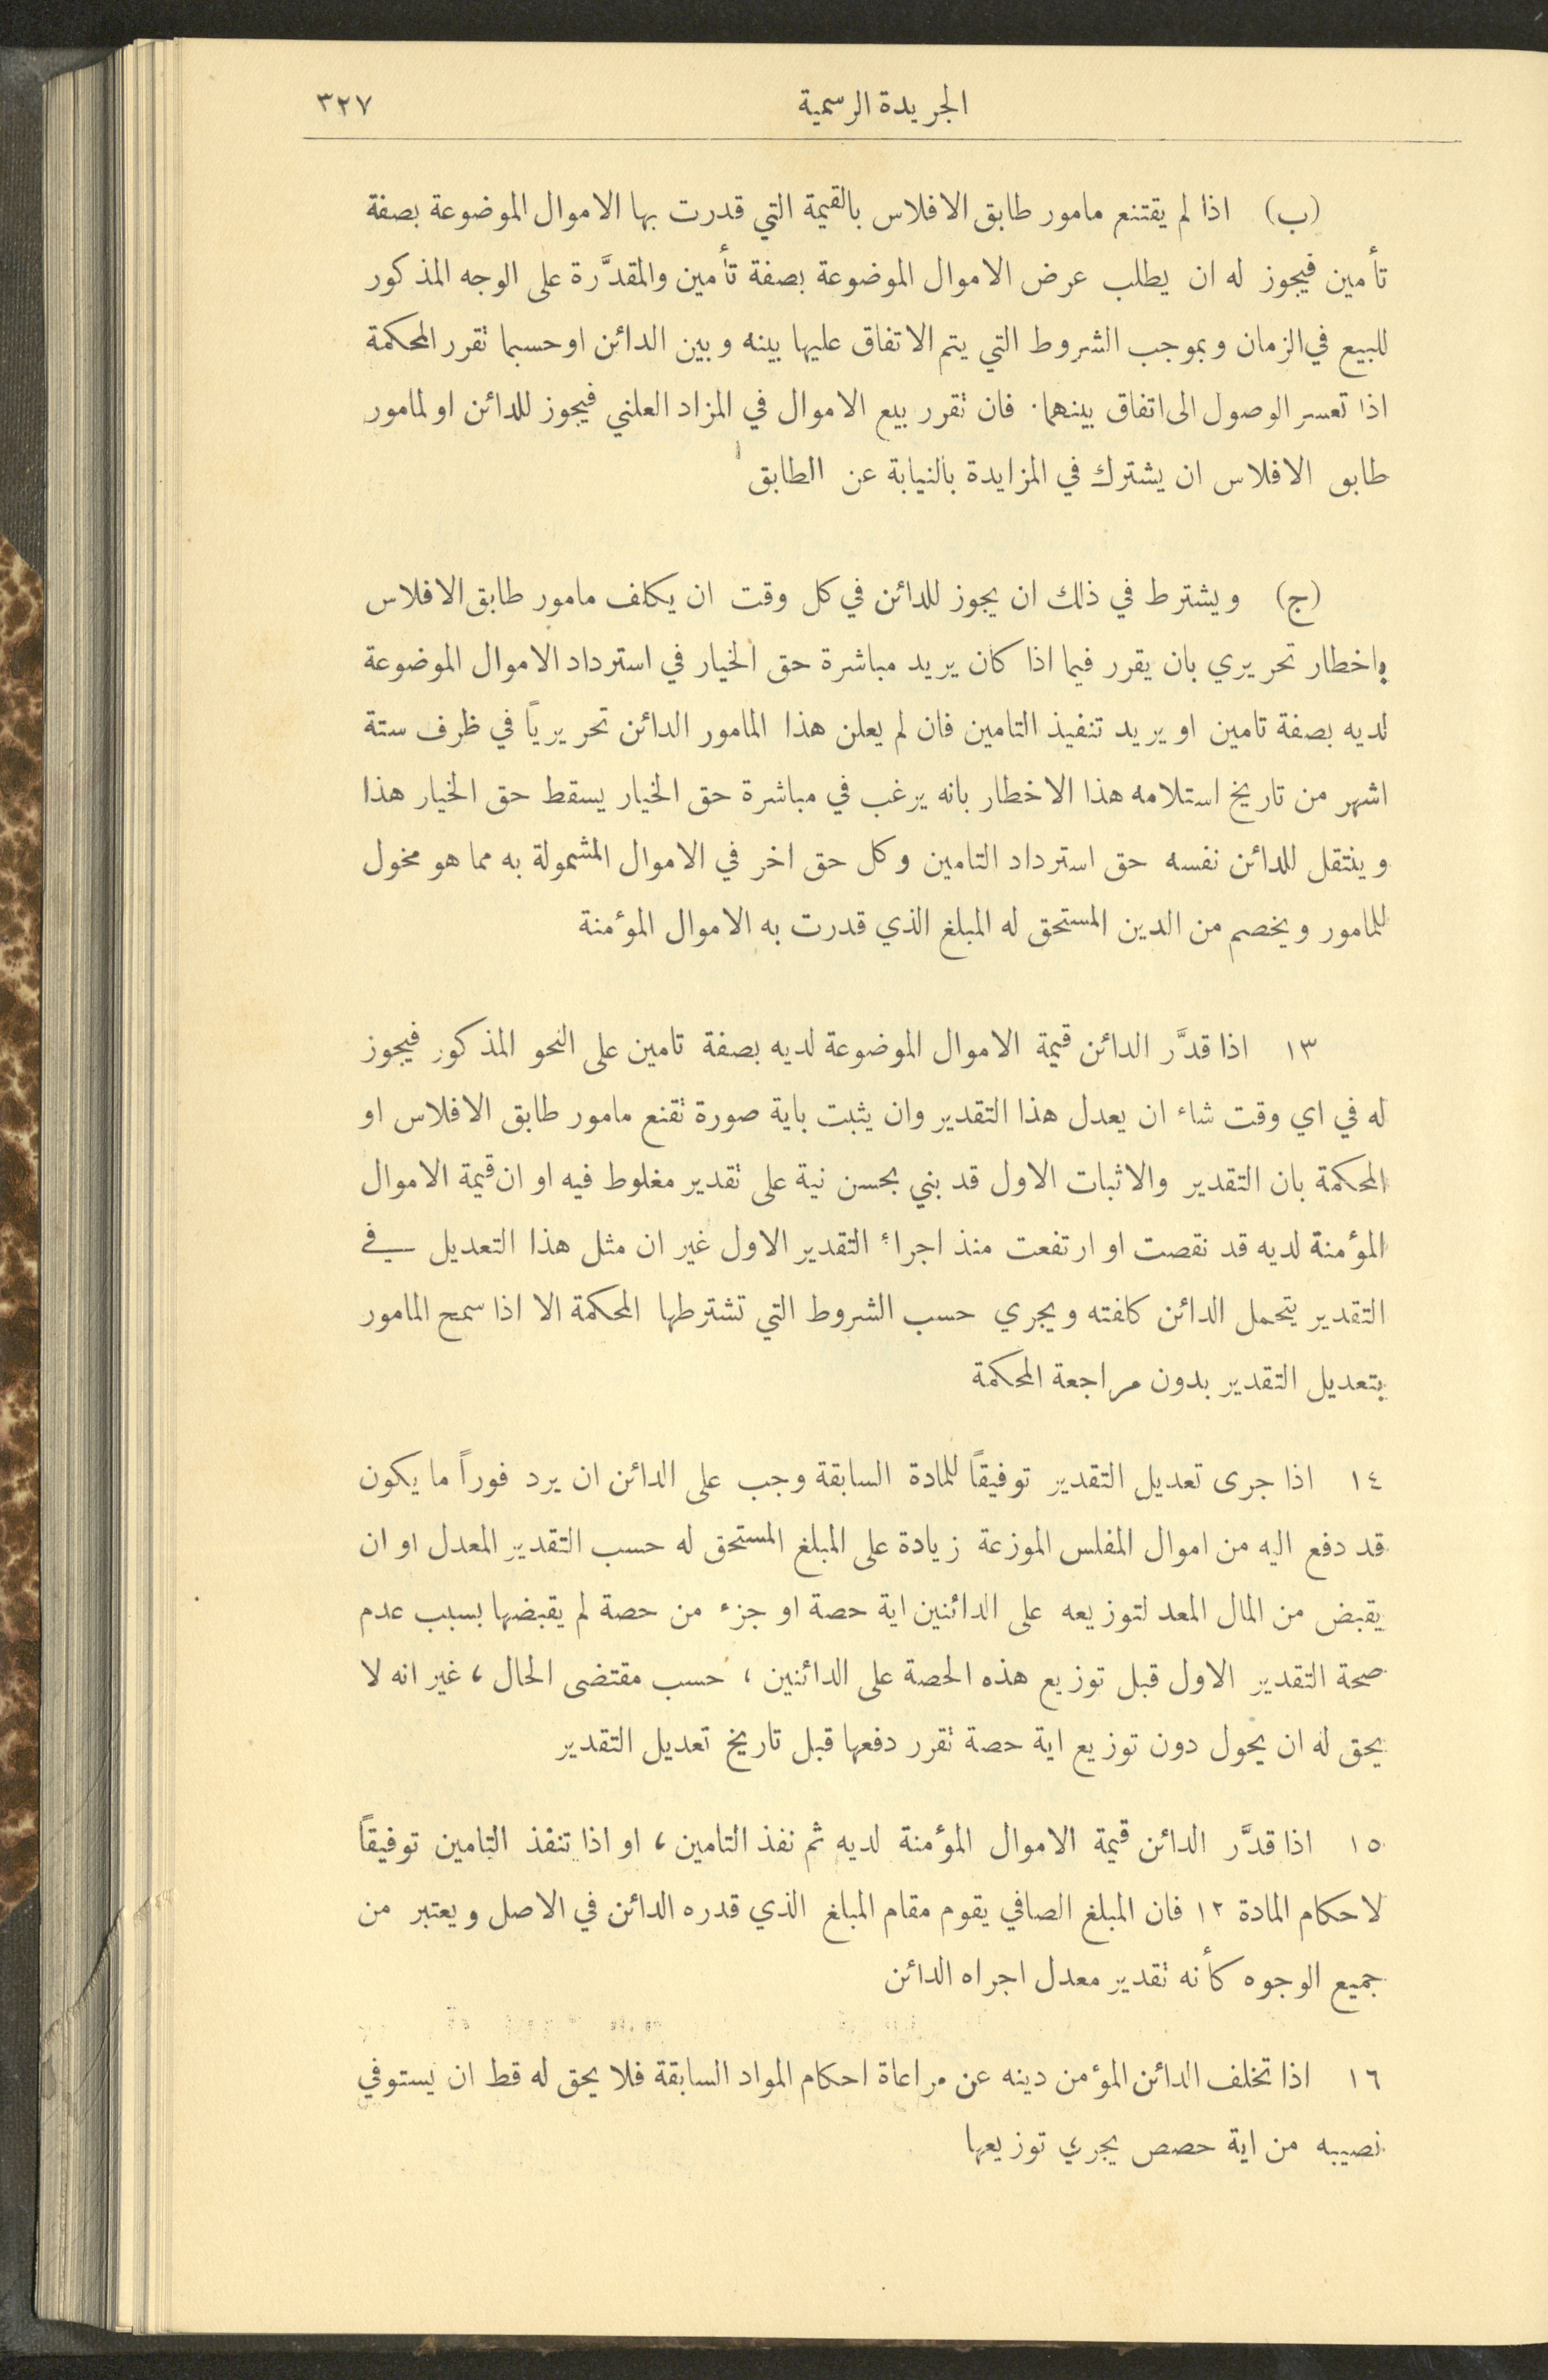 الجريدة الرسمية ٣٢٧
(ب) اذا لم يقتنع مامور طابق الافلاس بالقيمة التي قدرت بها الاموال الموضوعة بصفة
تأمين فيجوز له ان يطلب عرض الاموال الموضوعة بصفة تأمين والمقدَّرة على الوجه المذكور
للبيع في الزمان وبموجب الشروط التي يتم الاتفاق عليها بينه وبين الدائن او حسبما تقرر المحكمة
اذا تعسر الوصول الى اتفاق بينهما. فان تقرر بيع الاموال في المزاد العلني فيجوز للدائن او لمامور
طابق الافلاس ان يشترك في المزايدة بالنيابة عن الطابق
(ج) ويشترط في ذلك ان يجوز للدائن في كل وقت ان يكلف مامور طابق الافلاس
باخطار تحريري بان يقرر فيما اذا كان يريد مباشرة حق الخيار في استرداد الاموال الموضوعة
لديه بصفة تامين او يريد تنفيذ التامين فان لم يعلن هذا المامور الدائن تحريرياً في ظرف ستة
اشهر من تاريخ استلامه هذا الاخطار بانه يرغب في مباشرة حق الخيار يسقط حق الخيار هذا
وينتقل للدائن نفسه حق استرداد التامين وكل حق اخر في الاموال المشمولة به مما هو مخول
للمامور ويخصم من الدين المستحق له المبلغ الذي قدرت به الاموال المؤمنة
١٣ اذا قدَّر الدائن قيمة الاموال الموضوعة لديه بصفة تامين على النحو المذكور فيجوز
له في اي وقت شاء ان يعدل هذا التقدير وان يثبت باية صورة تقنع مامور طابق الافلاس او
المحكمة بان التقدير والاثبات الاول قد بني بحسن نية على تقدير مغلوط فيه او ان قيمة الاموال
المؤمنة لديه قد نقصت او ارتفعت منذ اجراء التقدير الاول غير ان مثل هذا التعديل في
التقدير يتحمل الدائن كلفته ويجري حسب الشروط التي تشترطها المحكمة الا اذا سمح المامور
بتعديل التقدير بدون مراجعة المحكمة
١٤ اذا جرى تعديل التقدير توفيقاً للمادة السابقة وجب على الدائن ان يرد فوراً ما يكون
قد دفع اليه من اموال المفلس الموزعة زيادة على المبلغ المستحق له حسب التقدير المعدل او ان
يقبض من المال المعد لتوزيعه على الدائنين اية حصة او جزء من حصة لم يقبضها بسبب عدم
صحة التقدير الاول قبل توزيع هذه الحصة على الدائنين ، حسب مقتضى الحال ، غير انه لا
يحق له ان يحول دون توزيع اية حصة تقرر دفعها قبل تاريخ تعديل التقدير
١٥ اذا قدَّر الدائن قيمة الاموال المؤمنة لديه ثم نفذ التامين ، او اذا تنفذ التامين توفيقاً
لاحكام المادة ١٢ فان المبلغ الصافي يقوم مقام المبلغ الذي قدره الدائن في الاصل ويعتبر من
جميع الوجوه كأنه تقدير معدل اجراه الدائن
١٦ اذا تخلف الدائن المؤمن دينه عن مراعاة احكام المواد السابقة فلا يحق له قط ان يستوفي
نصيبه من اية حصص يجري توزيعها